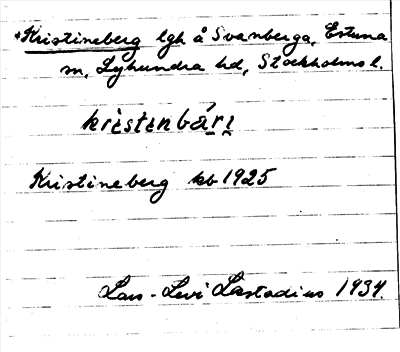 *Kristineberg lgh å Svanberga, Estuna
sn, Lyhundra hd, Stockholms l.
kristenbári
Kristineberg kb 1925
Lars-Levi Læstadius 1934.